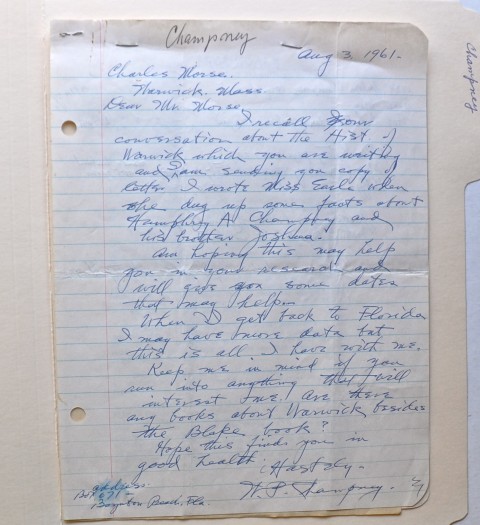 Champney
Champney
Aug 3, 1961-
Charles Morse.
Warwick, Mass.
Dear Mr. Morse,
I recall our
conversation about the Hist of
Warwick which you are writing
and I am sending you copy of
letter I wrote Miss Earle when
she dug up some facts about
Humphry A. Champney and
his brother Joshua.
Am hoping this may help
you in your research and
will give you some dates
that may help.
When I get back to Florida
I may have more data but
this is all I have with me.
Keep me in mind if you
run into anything that will
interest me. are there
any books about Warwick besides
the Blake book?
Hope this finds you in
good health. Hastily.
Champney.
address:
Box
Boynton Beach, Fla.